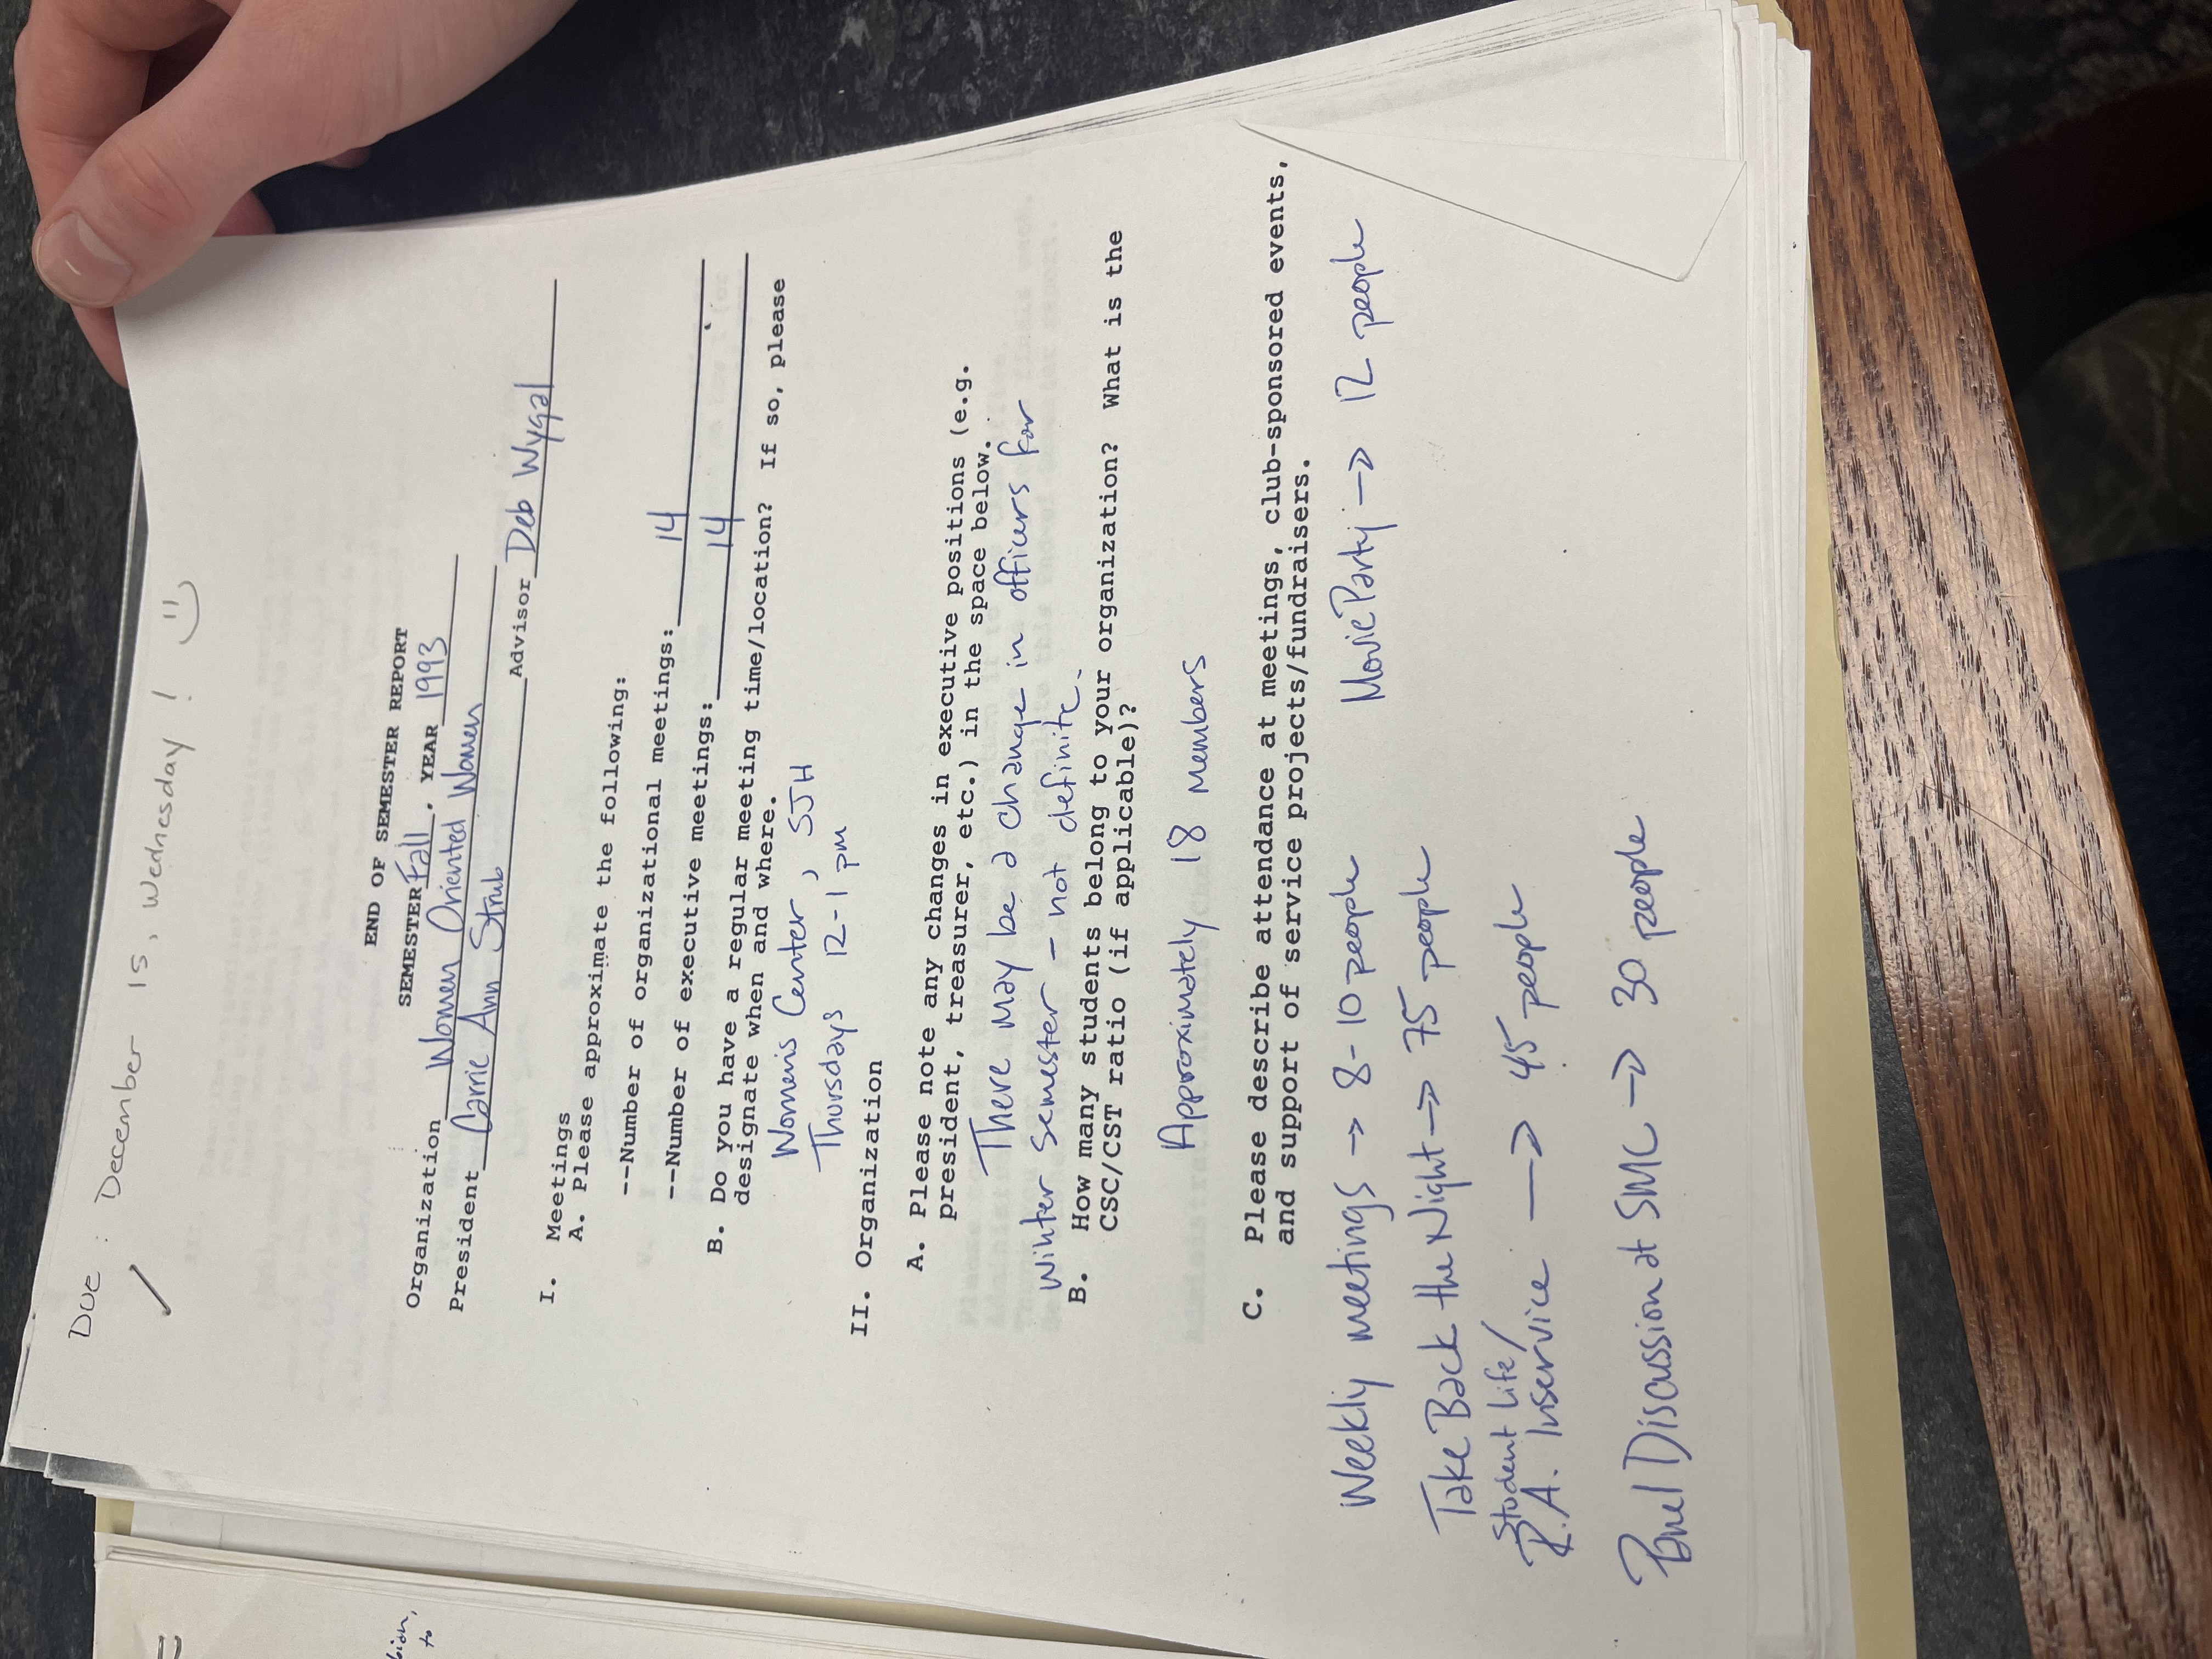 Due : December 15, Wednesday !
END OF SEMESTER REPORT
SEMESTER Fall . YEAR 1993
Organization Women Oriented Women
President Carrie Ann Strub Advisor Deb Wygal
I. Meetings
A. Please approximate the following:
--Number of organizational meetings: 14
--Number of executive meetings: 14
B. Do you have a regular meeting time/location? If so, please
designate when and where.
Women's Center, SJH
Thursdays 12-1 pm
II. Organization
A. Please note any changes in executive positions (e.g.
president, treasurer, etc.) in the space below.
There may be a change in officers for
winter semester - not definite.
B. How many students belong to your organization? What is the
CSC/CST ratio (if applicable)?
Approximately 18 members
C. Please describe attendance at meetings, club-sponsored events,
and support of service projects/fundraisers.
Weekly meetings → 8-10 people
Movie Party → 12 people
Take Back the Night → 75 people
Student Life/
R.A. Inservice → 45 people
Panel Discussion at SMC → 30 people
to